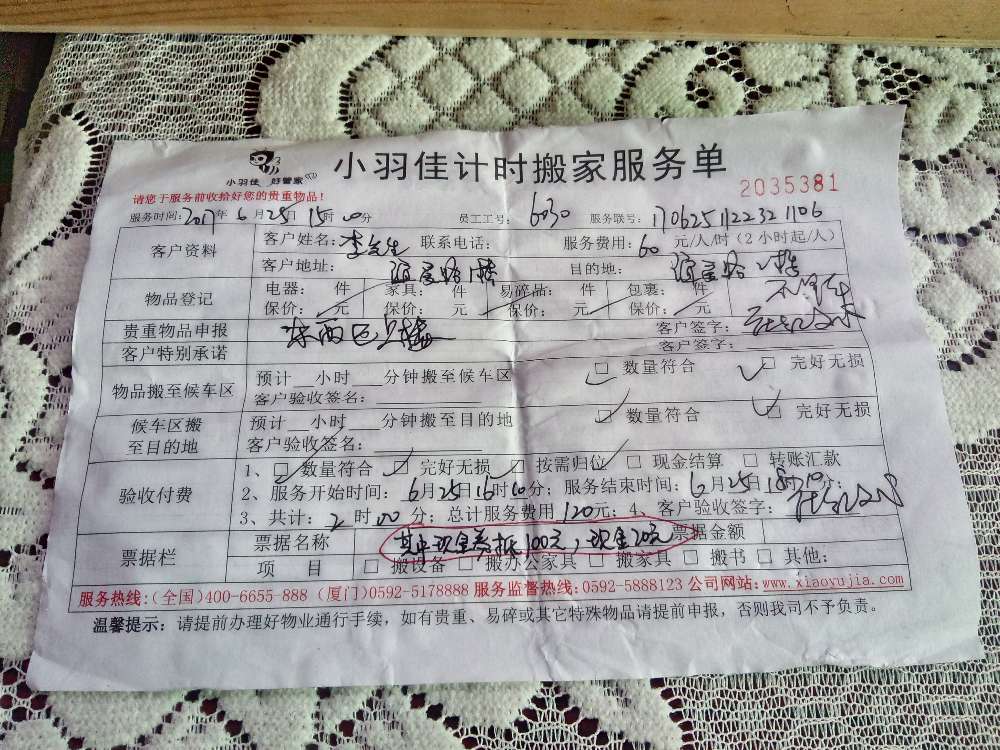 小羽佳 好管家
小羽佳计时搬家服务单
2035381
请您于服务前收拾好您的贵重物品！
服务时间：2017年6月25日15时00分 员工工号：6030 服务联号：170625112232 1106
客户资料 客户姓名：李先生 联系电话： 服务费用：60元/人/时（2小时起/人）
客户地址： 目的地：
物品登记 电器： 件 家具： 件 易碎品： 件 包裹： 件
保价： 元 保价： 元 保价： 元 保价： 元
贵重物品申报 客户签字：
客户特别承诺 客户签字：
物品搬至候车区 预计__小时___分钟搬至候车区 □ 数量符合 □ 完好无损
客户验收签名：
候车区搬至目的地 预计__小时___分钟搬至目的地 □ 数量符合 □ 完好无损
客户验收签名：
验收付费 1、□ 数量符合 □ 完好无损 □ 按需归位 □ 现金结算 □ 转账汇款
2、服务开始时间：6月25日16时10分；服务结束时间：6月25日18时10分；
3、共计：2时00分；总计服务费用120元；4、客户验收签字：
票据栏 票据名称 其中现金券抵100元，现金20元 票据金额
项 目 □ 搬设备 □ 搬办公家具 □ 搬家具 □ 搬书 □ 其他：
服务热线：（全国）400-6655 888（厦门）0592-5178888 服务监督热线：0592-5888123 公司网站：www.xiaoyujia.com
温馨提示：请提前办理好物业通行手续，如有贵重、易碎或其它特殊物品请提前申报，否则我司不予负责。